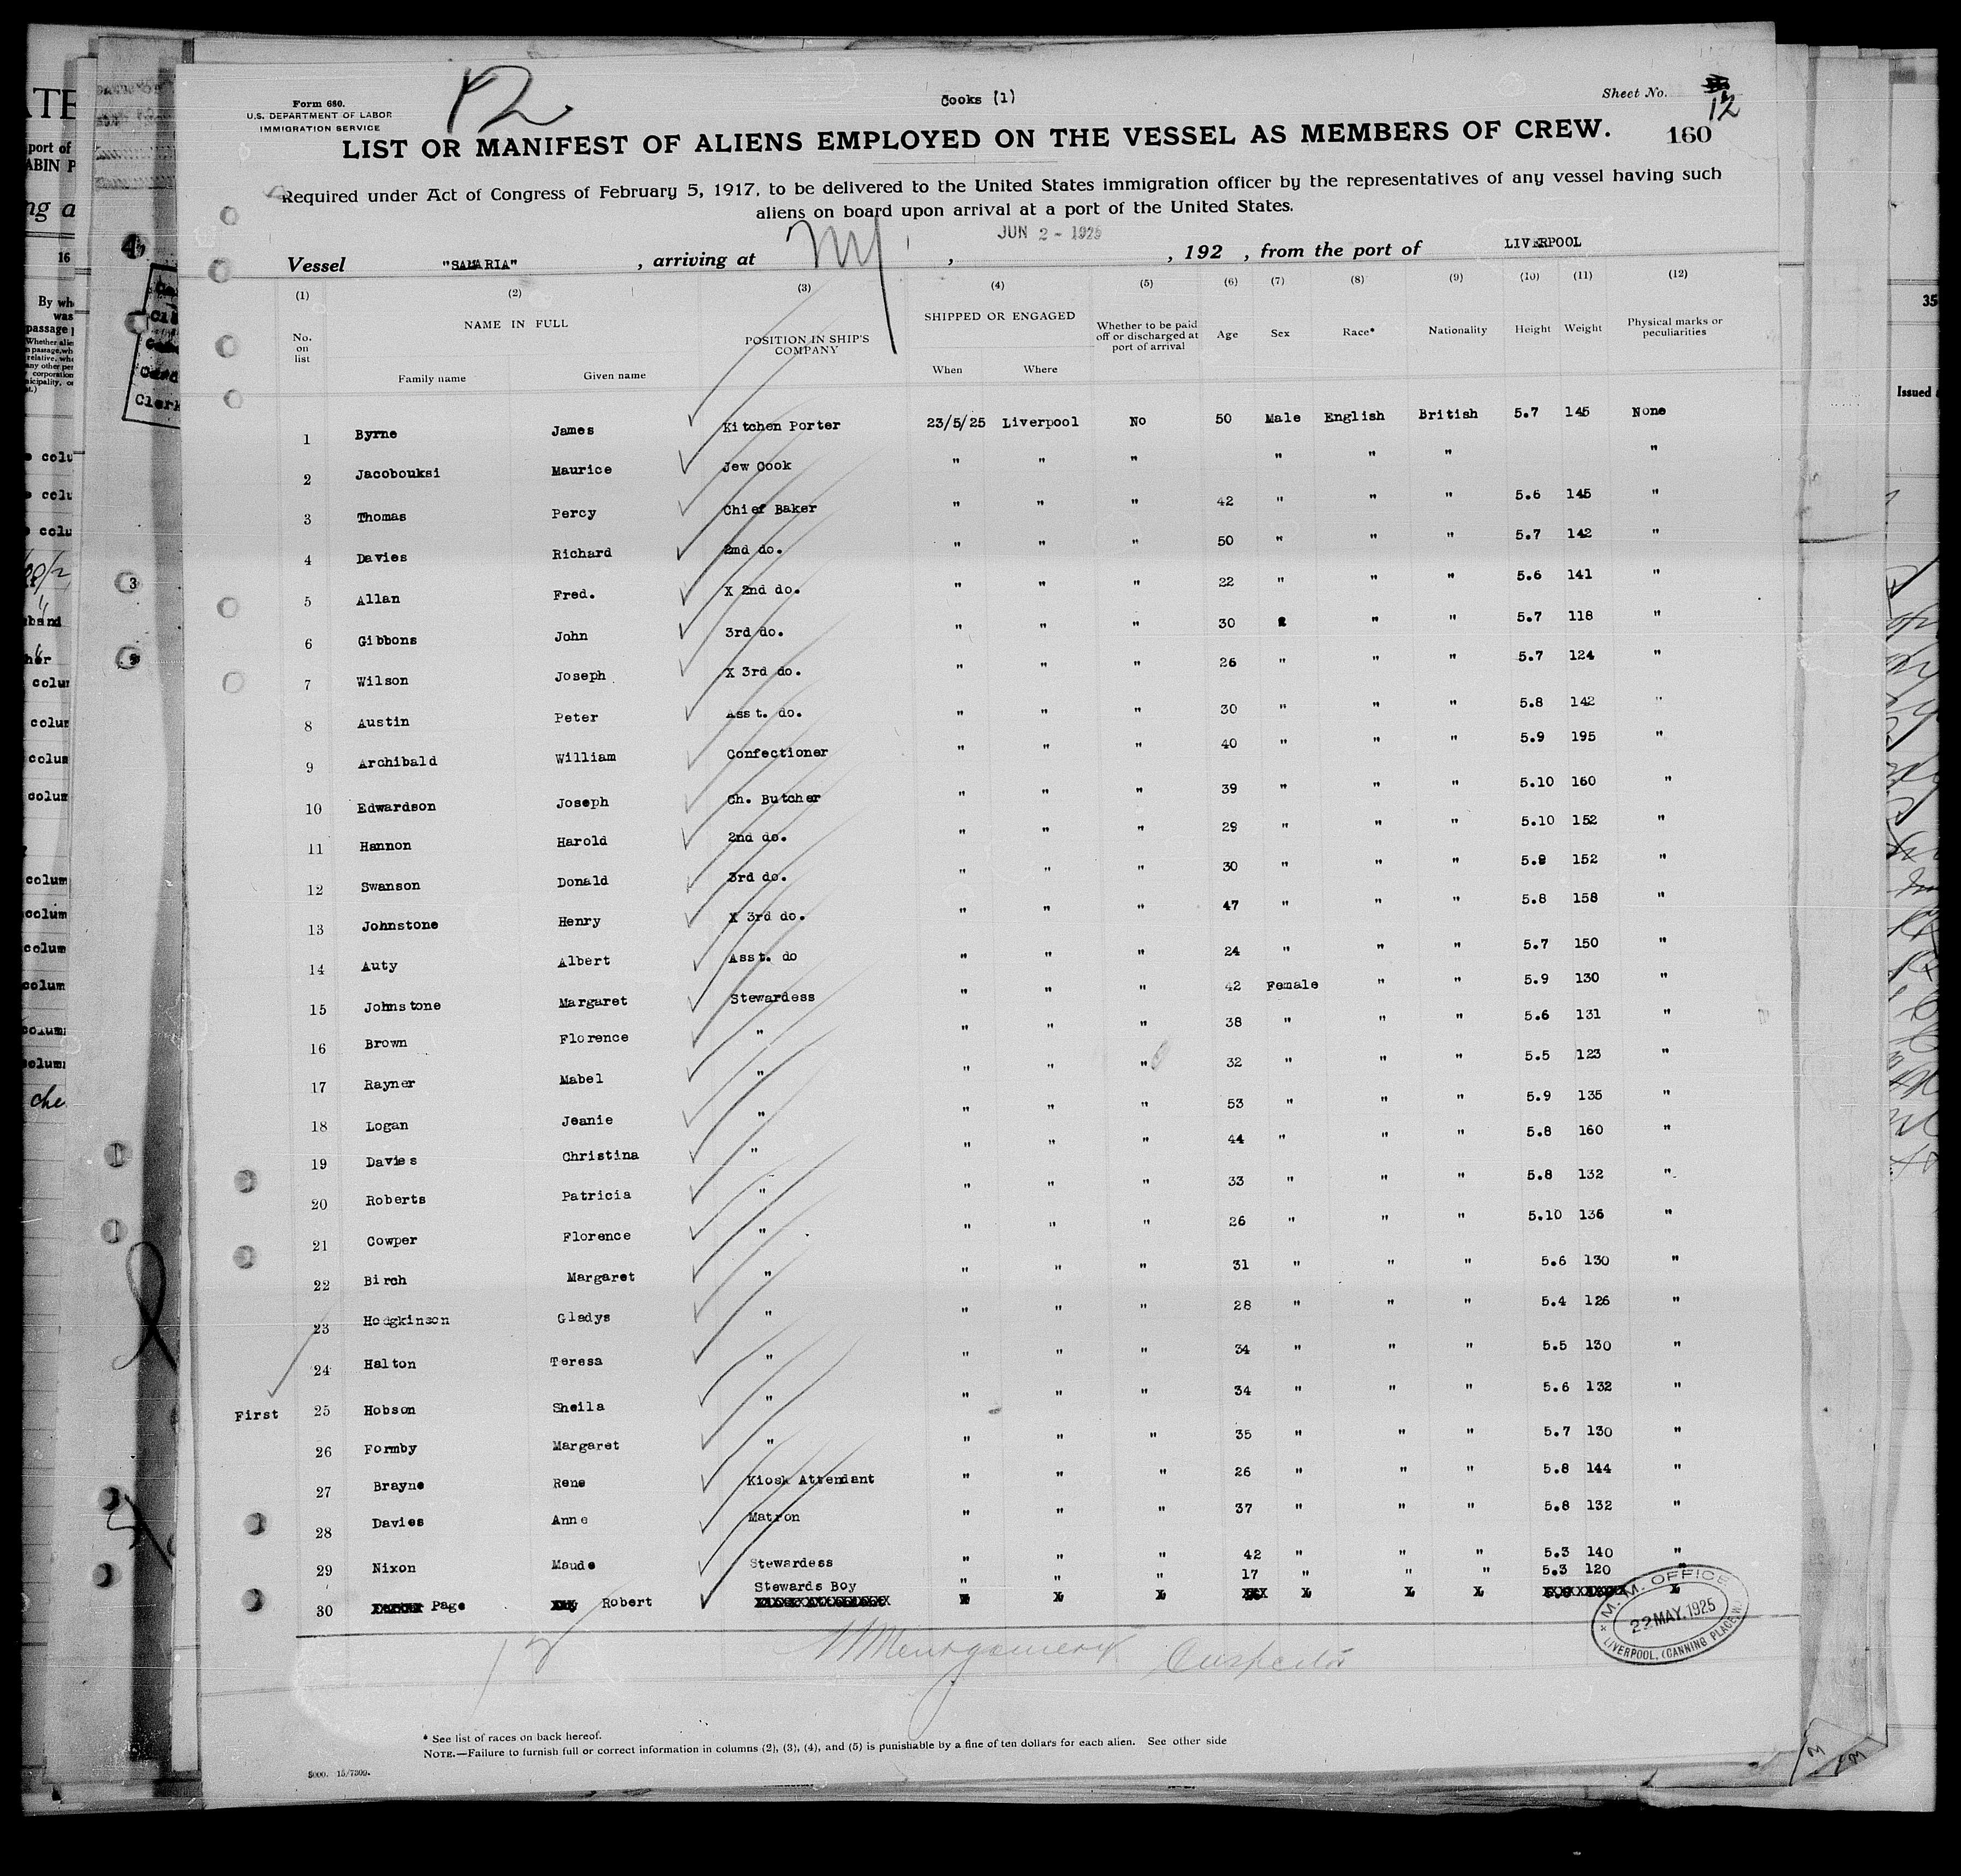 12
Cooks (1)
Sheet No. 12
Form 680.
U.S. DEPARTMENT OF LABOR
IMMIGRATION SERVICE
160
LIST OR MANIFEST OF ALIENS EMPLOYED ON THE VESSEL AS MEMBERS OF CREW.
Required under Act of Congress of February 5, 1917, to be delivered to the United States immigration officer by the representatives of any vessel having such
aliens on board upon arrival at a port of the United States.
JUN 2 - 1925
Vessel "SAMARIA" , arriving at NY , , 192 , from the port of LIVERPOOL
(1) (2) (3) (4) (5) (6) (7) (8) (9) (10) (11) (12)
No. on list NAME IN FULL POSITION IN SHIP'S COMPANY SHIPPED OR ENGAGED Whether to be paid off or discharged at port of arrival Age Sex Race* Nationality Height Weight Physical marks or peculiarities
Family name Given name When Where
1 Byrne James Kitchen Porter 23/5/25 Liverpool No 50 Male English British 5.7 145 None
2 Jacobouksi Maurice Jew Cook " " " " " " "
3 Thomas Percy Chief Baker " " " 42 " " " 5.6 145 "
4 Davies Richard 2nd do. " " " 50 " " " 5.7 142 "
5 Allan Fred. X 2nd do. " " " 22 " " " 5.6 141 "
6 Gibbons John 3rd do. " " " 30 " " 5.7 118 "
7 Wilson Joseph X 3rd do. " " " 26 " " " 5.7 124 "
8 Austin Peter Asst. do. " " " 30 " " " 5.8 142 "
9 Archibald William Confectioner " " " 40 " " " 5.9 195 "
10 Edwardson Joseph Ch. Butcher " " " 39 " " " 5.10 160 "
11 Hannon Harold 2nd do. " " " 29 " " " 5.10 152 "
12 Swanson Donald 3rd do. " " " 30 " " " 152 "
13 Johnstone Henry X 3rd do. " " " 47 " " " 5.8 158 "
14 Auty Albert Asst. do " " " 24 " " " 5.7 150 "
15 Johnstone Margaret Stewardess " " " 42 Female " " 5.9 130 "
16 Brown Florence " " " " 38 " " " 5.6 131 "
17 Rayner Mabel " " " " 32 " " " 5.5 123 "
18 Logan Jeanie " " " " 53 " " " 5.9 135 "
19 Davies Christina " " " " 44 " " " 5.8 160 "
20 Roberts Patricia " " " " 33 " " " 5.8 132 "
21 Cowper Florence " " " " 26 " " " 5.10 136 "
22 Birch Margaret " " " " 31 " " " 5.6 130 "
23 Hodgkinson Gladys " " " " 28 " " " 5.4 126 "
24 Halton Teresa " " " " 34 " " " 5.5 130 "
First 25 Hobson Sheila " " " " 34 " " " 5.6 132 "
26 Formby Margaret " " " " 35 " " " 5.7 130 "
27 Brayne Rene Kiosk Attendant " " " 26 " " " 5.8 144 "
28 Davies Anne Matron " " " 37 " " " 5.8 132 "
29 Nixon Maude Stewardess " " " 42 " " " 5.3 140 "
30 Page Robert Stewards Boy " " " 17 " " " 5.3 120 "
Montgomery Inspector
M. M. OFFICE
22 MAY. 1925
LIVERPOOL. (CANNING PLACE. W.)
* See list of races on back hereof.
NOTE.—Failure to furnish full or correct information in columns (2), (3), (4), and (5) is punishable by a fine of ten dollars for each alien. See other side
5000. 15/7309.